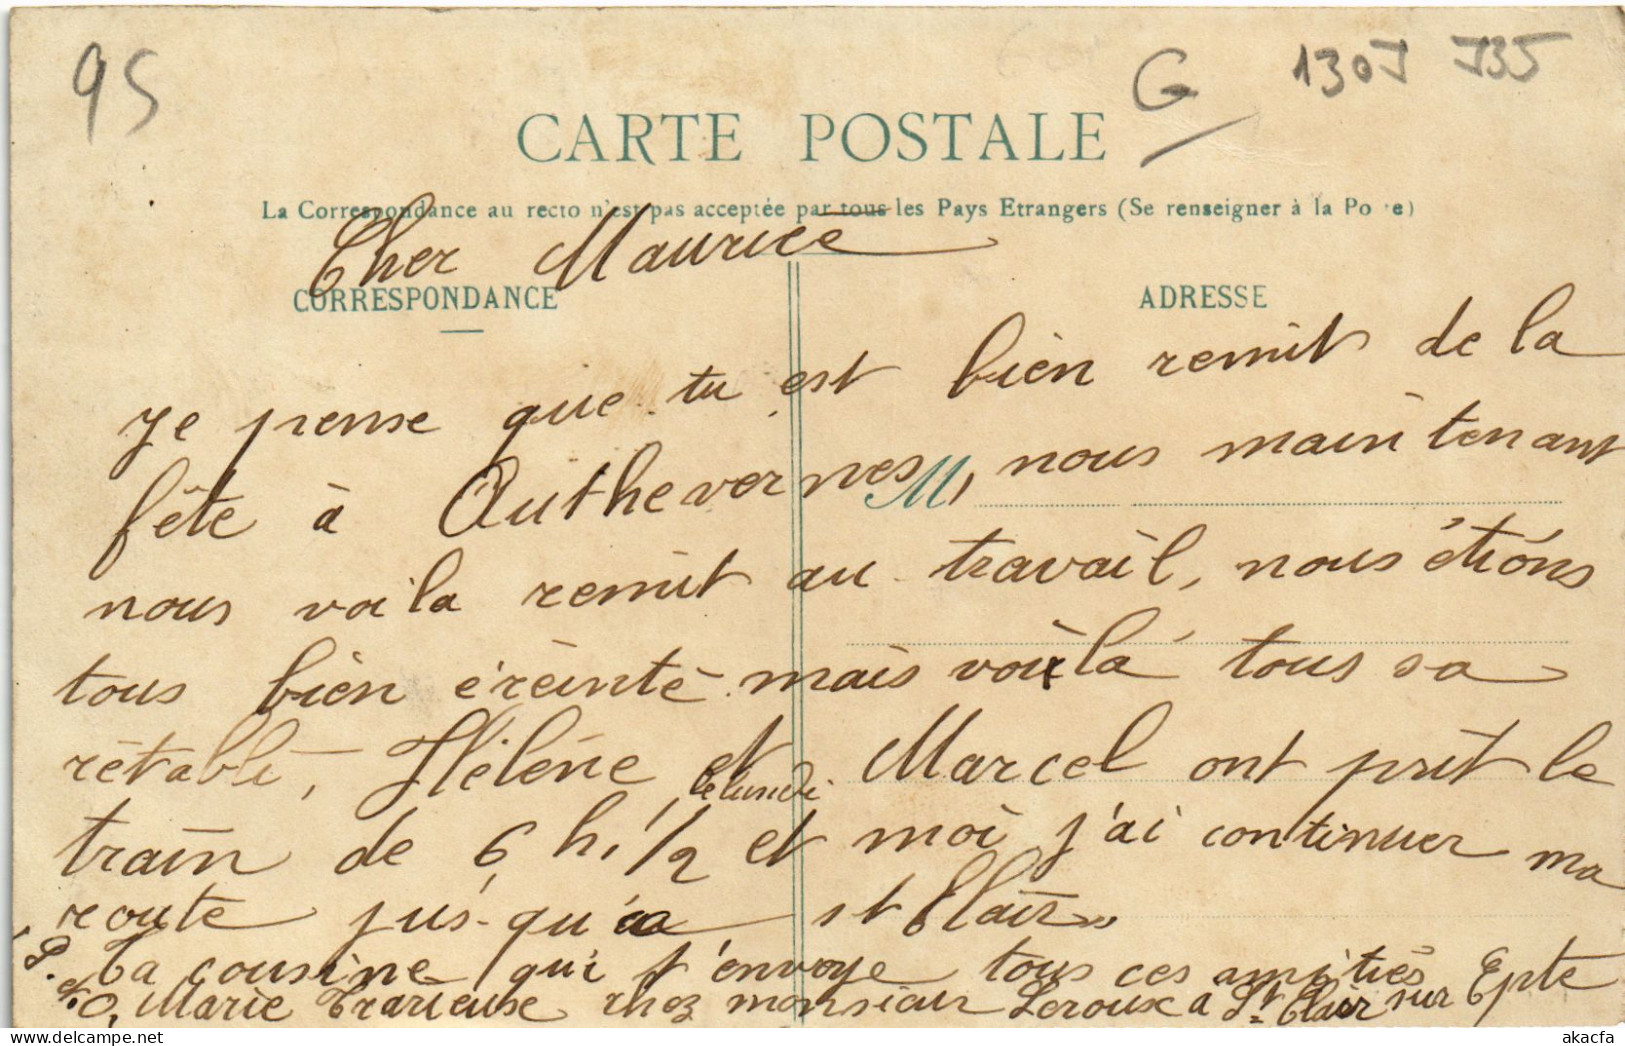 95
G 130J J35
CARTE POSTALE
La Correspondance au recto n'est pas acceptée par tous les Pays Etrangers (Se renseigner à la Po e)
Cher Maurice
CORRESPONDANCE
ADRESSE
Je pense que tu est bien remit de la
fête à Authevernes, nous maintenant
M
nous voila remit au travail, nous étions
tous bien éreinté mais voilà tous sa
rétablé, Hélène et Marcel ont prit le
le lundi
train de 6 h. 1/2 et moi j'ai continuer ma
route jus-qu'a st Clair
Ta cousine qui t'envoye tous ces amitiés
Marie Trarieuse chez monsieur Leroux à St Clair sur Epte
akacfa